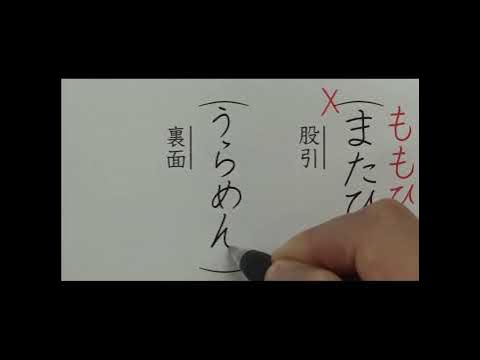 ももひ
×(またひ
股引
(うらめん)
裏面